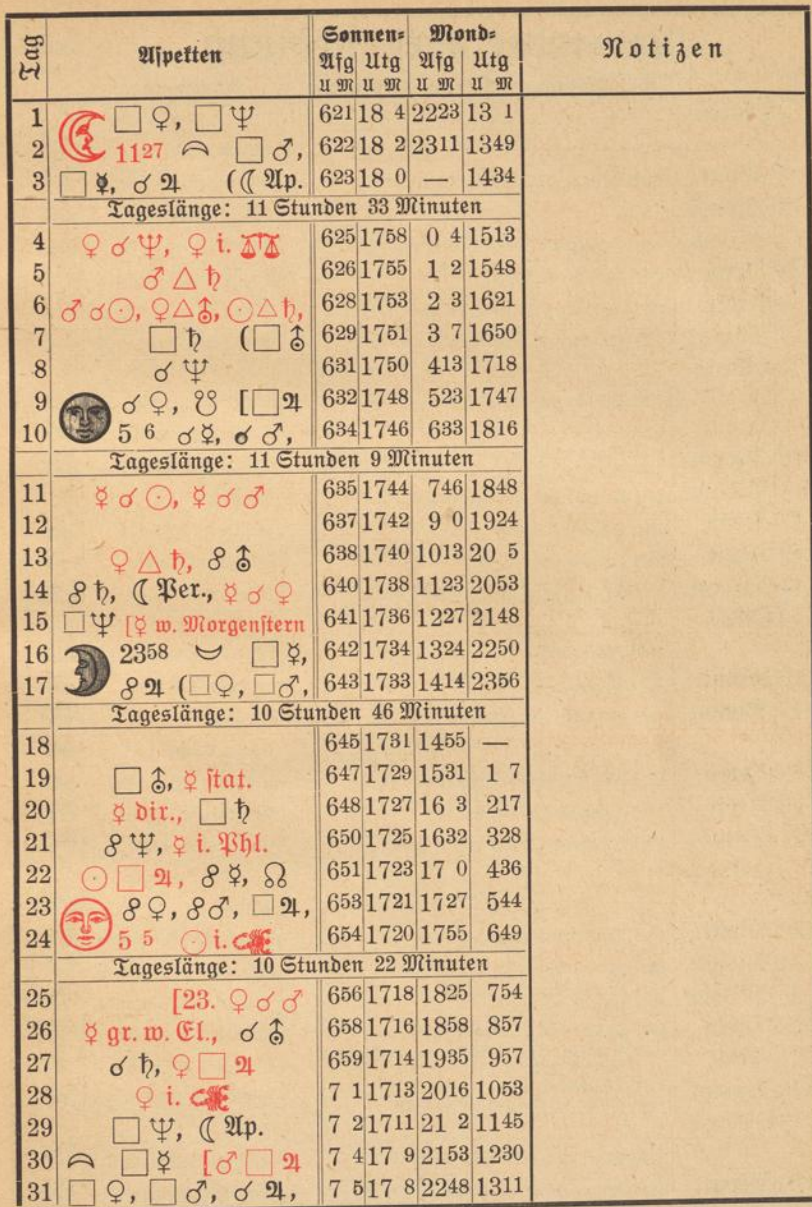 Tag Aspekten Sonnen= Mond= Notizen
Afg Utg Afg Utg
U M U M U M U M
1 □ ♀, □ ♆ 621 18 4 2223 13 1
2 1127 □ ♂, 622 18 2 2311 1349
3 □ ☿, ☌ ♃ (☾ Ap. 623 18 0 — 1434
Tageslänge: 11 Stunden 33 Minuten
4 ♀ ☌ ♆, ♀ i. 625 1758 0 4 1513
5 ♂ △ ♄ 626 1755 1 2 1548
6 ♂ ☌ ☉, ♀ △ ⛢, ☉ △ ♄, 628 1753 2 3 1621
7 □ ♄ (□ ⛢ 629 1751 3 7 1650
8 ☌ ♆ 631 1750 413 1718
9 ☌ ♀, ☋ [□ ♃ 632 1748 523 1747
10 5 6 ☌ ☿, ☌ ♂, 634 1746 633 1816
Tageslänge: 11 Stunden 9 Minuten
11 ☿ ☌ ☉, ☿ ☌ ♂ 635 1744 746 1848
12 637 1742 9 0 1924
13 ♀ △ ♄, ☍ ⛢ 638 1740 1013 20 5
14 ☍ ♄, ☾ Per., ☿ ☌ ♀ 640 1738 1123 2053
15 □ ♆ [☿ w. Morgenstern 641 1736 1227 2148
16 2358 □ ☿, 642 1734 1324 2250
17 ☍ ♃ (□ ♀, □ ♂, 643 1733 1414 2356
Tageslänge: 10 Stunden 46 Minuten
18 645 1731 1455 —
19 □ ⛢, ☿ stat. 647 1729 1531 1 7
20 ☿ dir., □ ♄ 648 1727 16 3 217
21 ☍ ♆, ☿ i. Phl. 650 1725 1632 328
22 ☉ □ ♃, ☍ ☿, ☊ 651 1723 17 0 436
23 ☍ ♀, ☍ ♂, □ ♃, 653 1721 1727 544
24 5 5 ☉ i. 654 1720 1755 649
Tageslänge: 10 Stunden 22 Minuten
25 [23. ♀ ☌ ♂ 656 1718 1825 754
26 ☿ gr. w. El., ☌ ⛢ 658 1716 1858 857
27 ☌ ♄, ♀ □ ♃ 659 1714 1935 957
28 ♀ i. 7 1 1713 2016 1053
29 □ ♆, ☾ Ap. 7 2 1711 21 2 1145
30 □ ☿ [♂ □ ♃ 7 4 17 9 2153 1230
31 □ ♀, □ ♂, ☌ ♃, 7 5 17 8 2248 1311